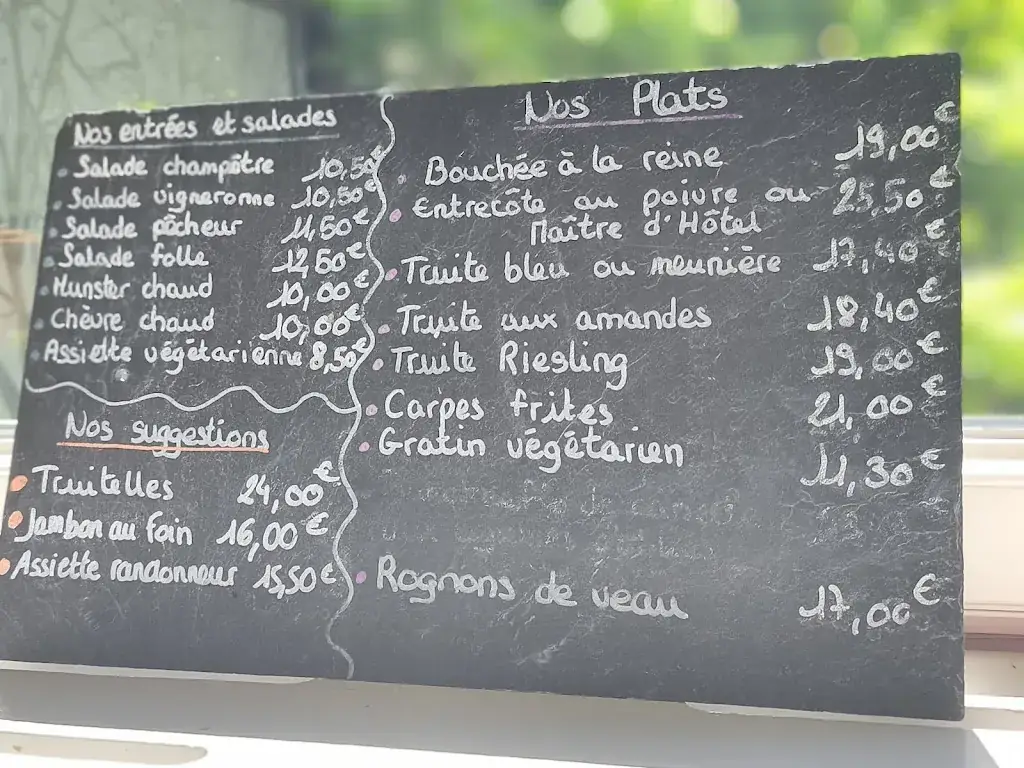 Nos entrées et salades
Salade champêtre 10,50€
Salade vigneronne 10,50€
Salade pêcheur 11,50€
Salade folle 12,50€
Munster chaud 10,00€
Chèvre chaud 10,00€
Assiette végétarienne 8,50€
Nos suggestions
Truitelles 24,00€
Jambon au foin 16,00€
Assiette randonneur 15,50€
Nos Plats
Bouchée à la reine 19,00€
Entrecôte au poivre ou 25,50€
Maître d'Hôtel
Truite bleu ou meunière 17,40€
Truite aux amandes 18,40€
Truite Riesling 19,00€
Carpes frites 21,00€
Gratin végétarien 11,30€
Rognons de veau 17,00€